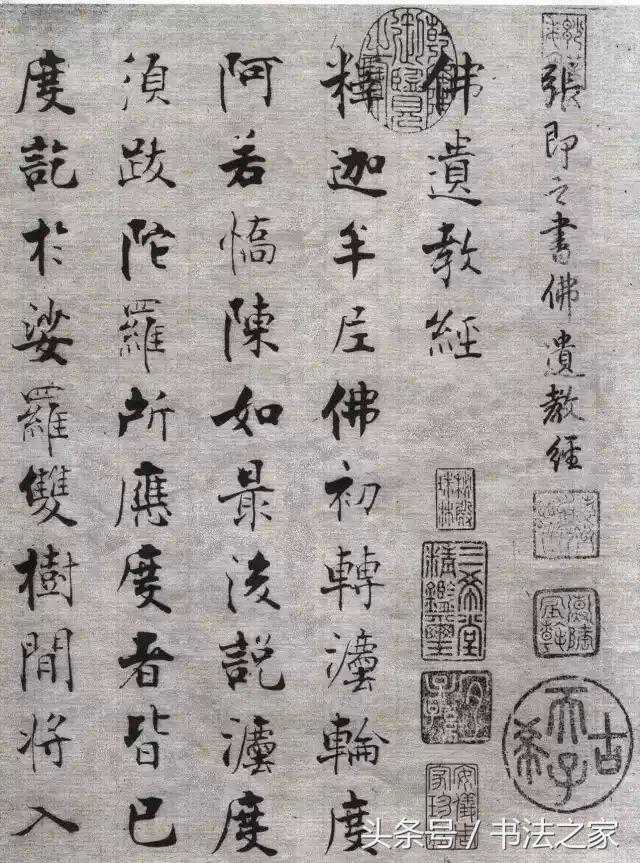 張即之書佛遺教經
古希天子
佛遺教經
三希堂精鑑璽
宜子孫
釋迦牟尼佛初轉灋輪度
阿若憍陳如最後說灋度
須跋陀羅所應度者皆已
度訖於娑羅雙樹間將入
头条号 / 书法之家